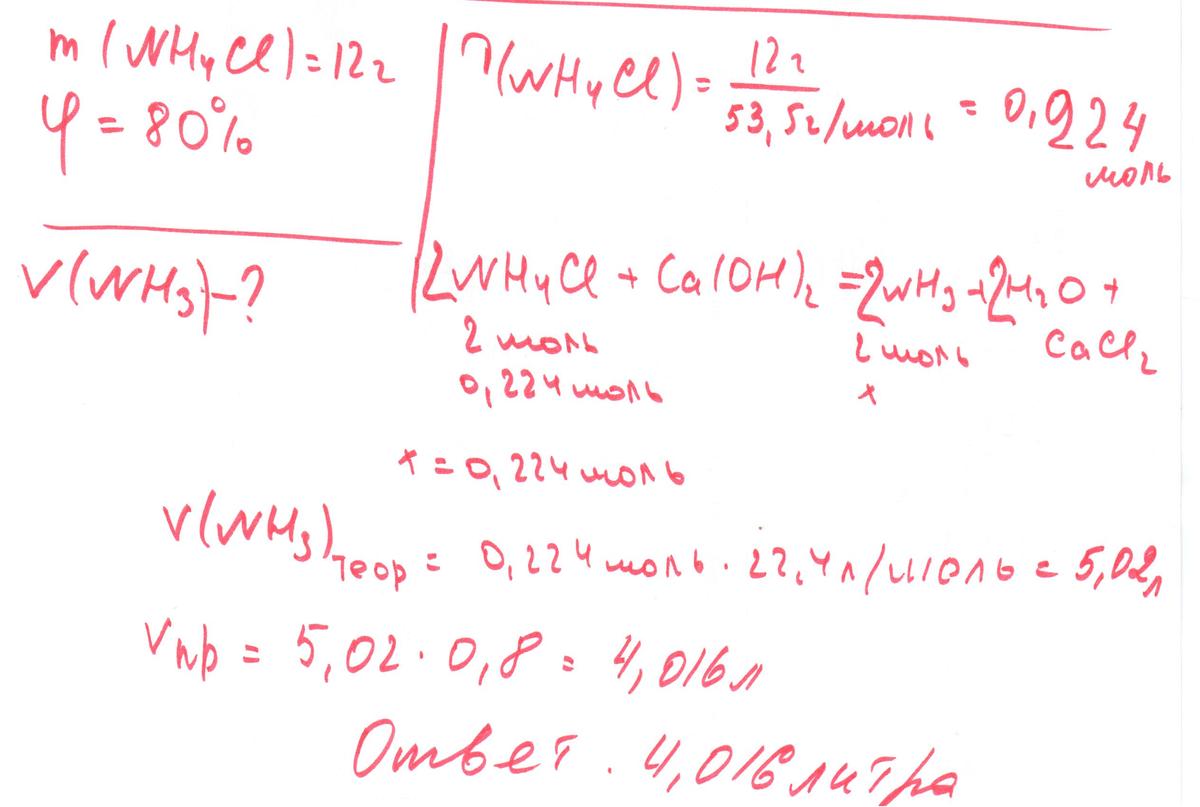 m(NH4Cl)=12г
φ=80%
V(NH3)-?
n(NH4Cl)=12г/53,5г/моль=0,224 моль
2NH4Cl+Ca(OH)2=2NH3+2H2O+CaCl2
2 моль 2 моль
0,224 моль x
x=0,224 моль
V(NH3)теор=0,224 моль·22,4л/моль=5,02л
Vпр=5,02·0,8=4,016л
Ответ. 4,016 литра